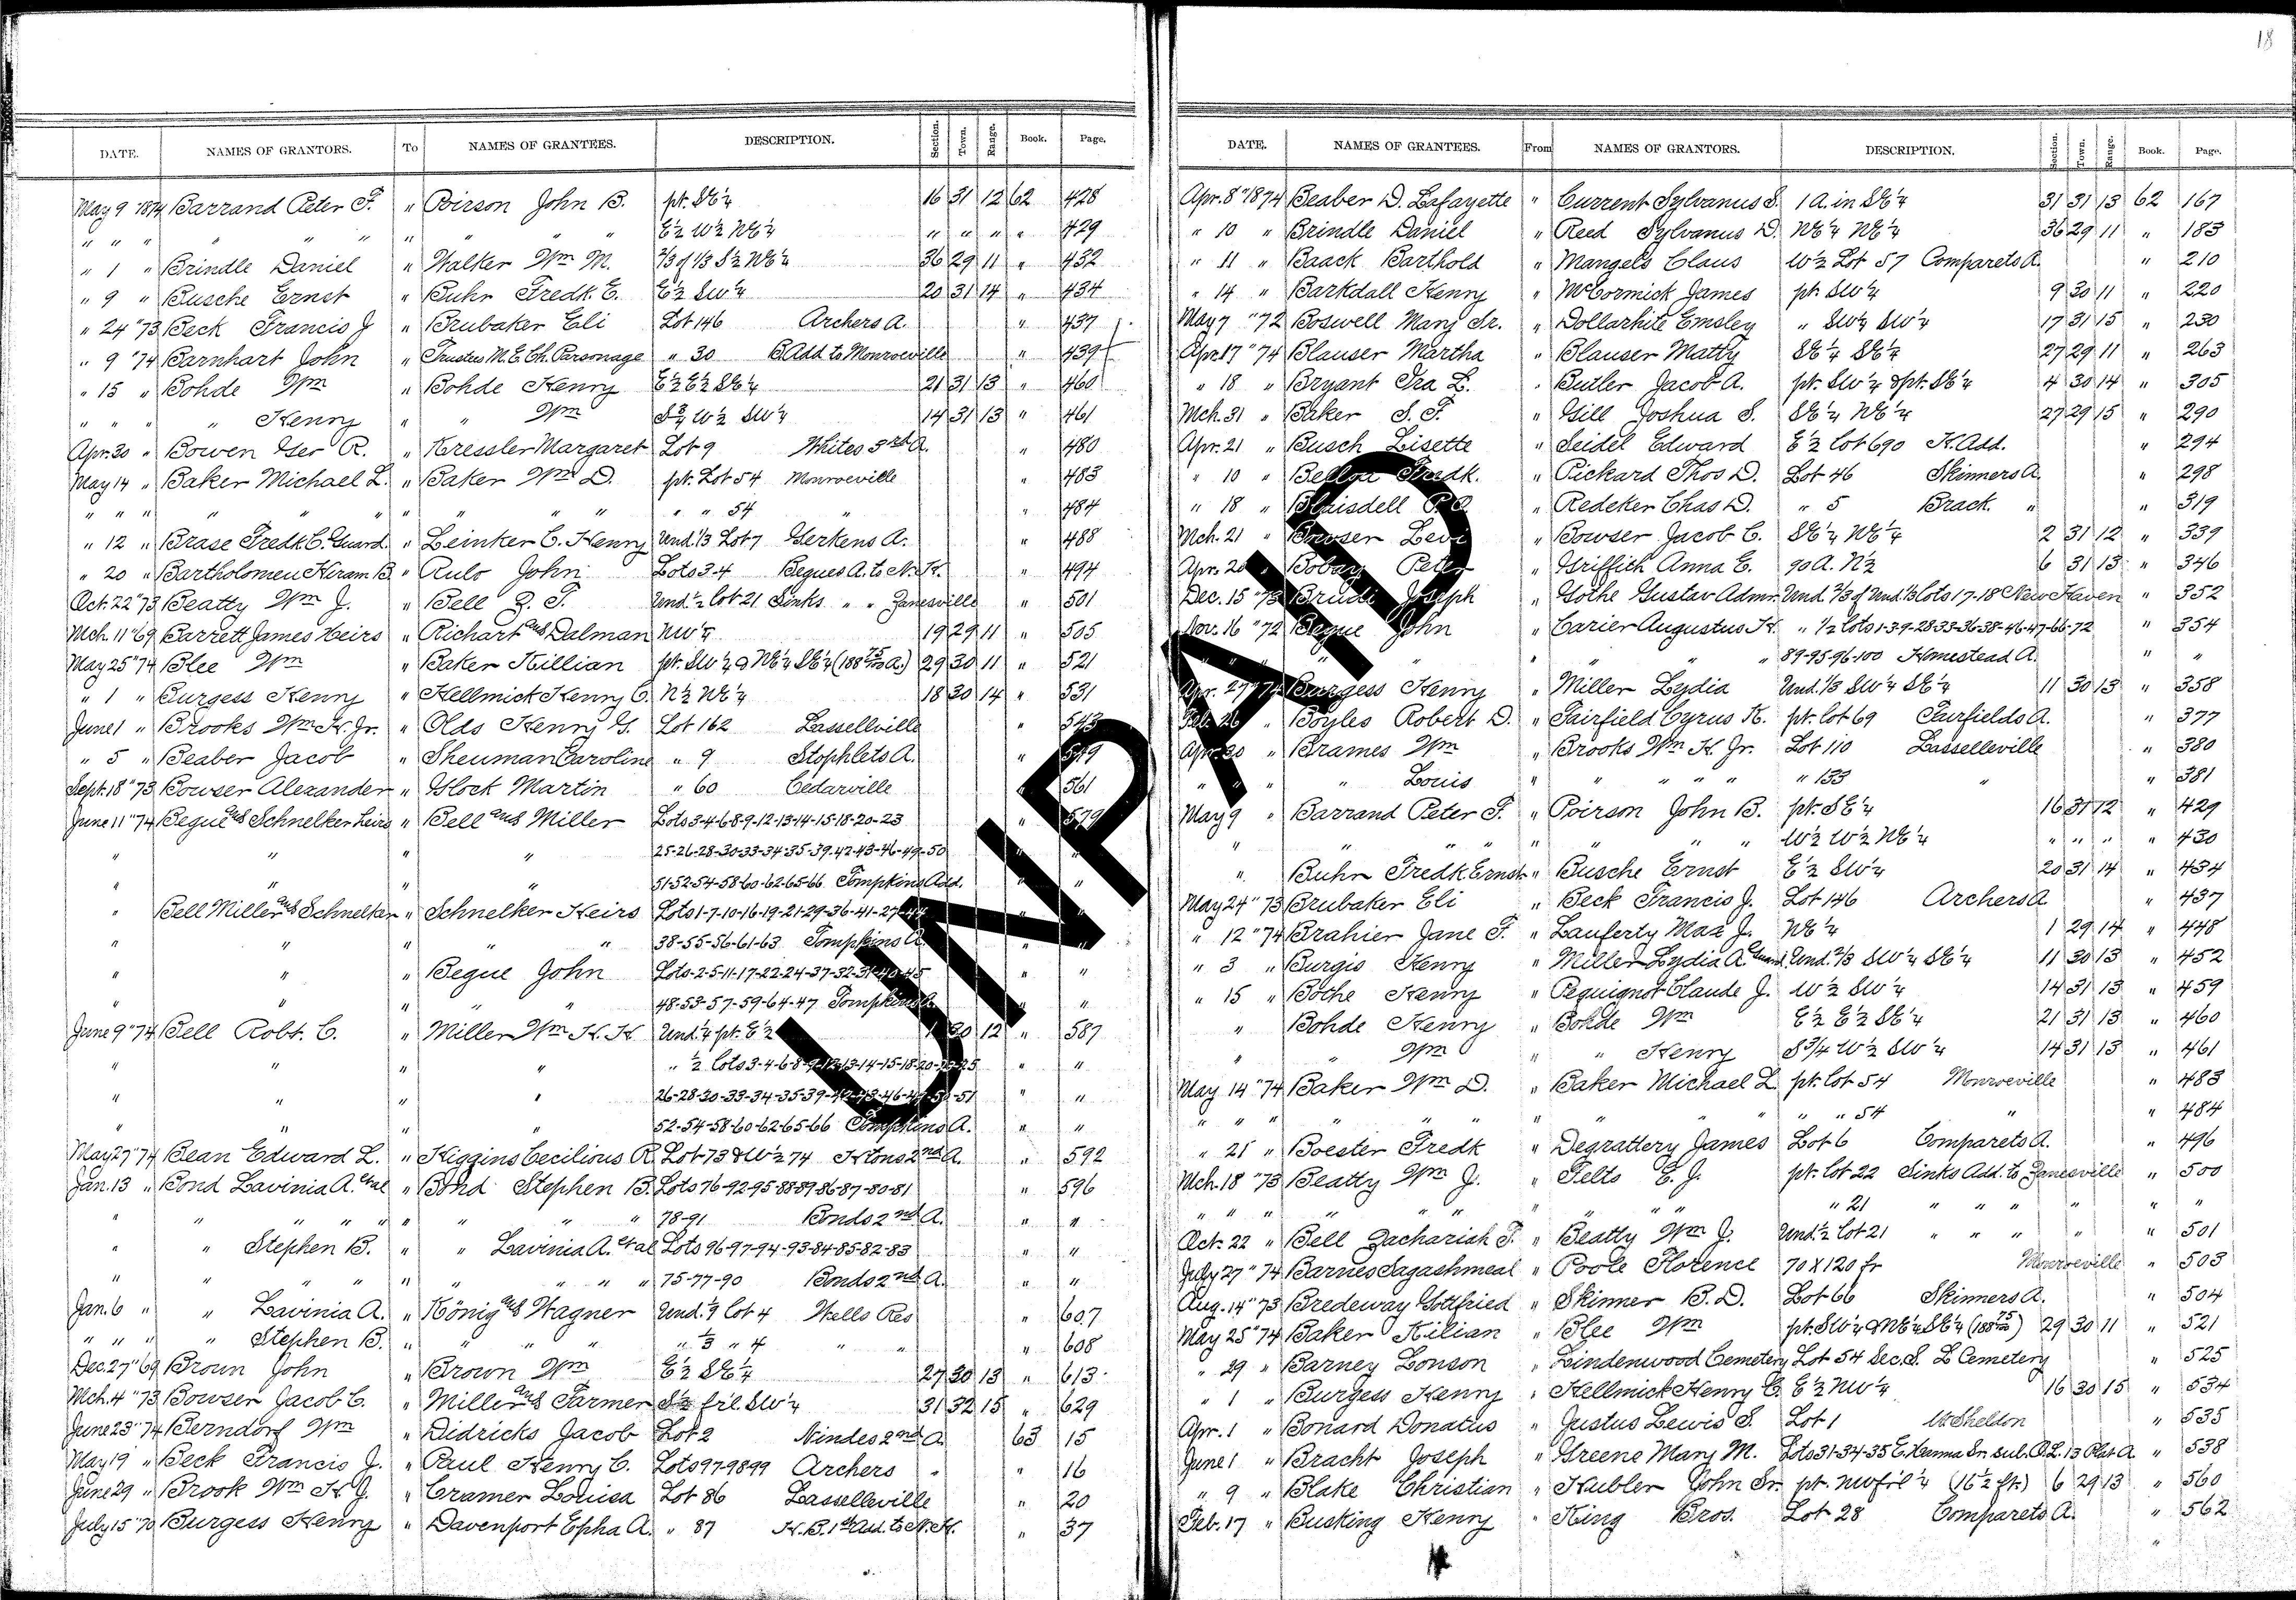 18
DATE. NAMES OF GRANTORS. To NAMES OF GRANTEES. DESCRIPTION. Section. Town. Range. Book. Page.
May 9 1874 Barrand Peter F. " Poirson John B. pt. SE¼ 16 31 12 62 428
" " " " " " " " " " E½ W½ NE¼ " " " " 429
" 1 " Brindle Daniel " Walker Wm M. ⅔ of ⅓ S½ NE¼ 36 29 11 " 432
" 9 " Busche Ernst " Buhr Fredk. E. E½ SW¼ 20 31 14 " 434
" 24 "73 Beck Francis J " Brubaker Eli Lot 146 Archers A. " 437
" 9 "74 Barnhart John " Trustees M.E. Ch. Parsonage " 30 B. Add to Monroeville " 439
" 15 " Bohde Wm " Bohde Henry E½ E½ SE¼ 21 31 13 " 460
" " " " Henry " " Wm S¾ W½ SW¼ 14 31 13 " 461
Apr. 30 " Bowen R. " Kressler Margaret Lot 9 Whites 3rd A. " 480
May 14 " Baker Michael L. " Baker Wm D. pt. Lot 54 Monroeville " 483
" " " " " " " " " " 54 " " 484
" 12 " Brase Fredk C. Guard. " Leinker C. Henry Und. ⅓ Lot 7 Gerkens A. " 488
" 20 " Bartholomew Hiram B. " Rulo John Lots 3-4 Begues A. to N. H. " 494
Oct. 22 "73 Beatty Wm J. " Bell Z. T. Und. ½ lot 21 Sinks " " Zanesville " 501
Mch. 11 "69 Barrett James Heirs " Richart and Dalman NW¼ 19 29 11 " 505
May 25 "74 Blee Wm " Baker Killian pt. SW¼ & NE¼ SE¼ (188 75/100 A.) 29 30 11 " 521
" 1 " Burgess Henry " Hellmick Henry C. N½ NE¼ 18 30 14 " 531
June 1 " Brooks Wm H. Jr. " Olds Henry G. Lot 162 Lasselleville " 543
" 5 " Beaber Jacob " Sheuman Caroline " 9 Stophlets A. " 549
Sept. 18 "73 Bowser Alexander " Glock Martin " 60 Cedarville " 561
June 11 "74 Begue and Schnelker Heirs " Bell and Miller Lots 3-4-6-8-9-12-13-14-15-18-20-23 " 579
" " " " 25-26-28-30-33-34-35-39-42-43-46-49-50 " "
" " " " 51-52-54-58-60-62-65-66 Tompkins Add. " "
" Bell Miller and Schnelker " Schnelker Heirs Lots 1-7-10-16-19-21-29-36-41-27-44 " "
" " " " " 38-55-56-61-63 Tompkins A. " "
" " " Begue John Lots 2-5-11-17-22-24-37-32-31-40-45 " "
" " " " " 48-53-57-59-64-47 Tompkins A. " "
June 9 "74 Bell Robt. C. " Miller Wm H. H. Und. ¼ pt. E½ 1 30 12 " 587
" " " " " ½ Lots 3-4-6-8-9-12-13-14-15-18-20-23-25 " "
" " " " 26-28-30-33-34-35-39-42-43-46-49-50-51 " "
" " " " 52-54-58-60-62-65-66 Tompkins A. " "
May 27 "74 Bean Edward L. " Higgins Cecilious R. Lot 73 & W½ 74 2nd A. " 592
Jan. 13 " Bond Lavinia A. et al " Bond Stephen B. Lots 76-92-95-88-89-86-87-80-81 " 596
" " " " " " " " 78-91 Bonds 2nd A. " "
" " Stephen B. " " Lavinia A. et al Lots 96-97-94-93-84-85-82-83 " "
" " " " " " " " " 75-77-90 Bonds 2nd A. " "
Jan. 6 " " Lavinia A. " König and Wagner Und. 1/9 lot 4 Wells Res " 607
" " " " Stephen B. " " " " " ⅓ " 4 " " " 608
Dec. 27 "69 Brown John " Brown Wm E½ SE¼ 27 30 13 " 613
Mch. 4 "73 Bowser Jacob C. " Miller and Farmer S½ fr'l. SW¼ 31 32 15 " 629
June 23 "74 Berndorf Wm " Didricks Jacob Lot 2 Nindes 2nd A 63 15
May 19 " Beck Francis J. " Paul Henry C. Lots 97-98 & 99 Archers " " 16
June 29 " Brook Wm H. J. " Cramer Louisa Lot 86 Lasselleville " 20
July 15 "70 Burgess Henry " Davenport Epha A. " 87 H. B. 1st Add. to N. H. " 37
DATE. NAMES OF GRANTEES. From NAMES OF GRANTORS. DESCRIPTION. Section. Town. Range. Book. Page.
Apr. 8 "1874 Beaber D. Lafayette " Current Sylvanus S. 1 A. in SE¼ 31 31 13 62 167
" 10 " Brindle Daniel " Reed Sylvanus D. NE¼ NE¼ 36 29 11 " 183
" 11 " Baack Barthold " Mangels Claus W½ Lot 57 Comparets A. " 210
" 14 " Barkdall Henry " McCormick James pt. SW¼ 9 30 11 " 220
May 7 "72 Boswell Mary Sr. " Dollarhite Emsley " SW¼ SW¼ 17 31 15 " 230
Apr. 17 "74 Blauser Martha " Blauser Matty SE¼ SE¼ 27 29 11 " 263
" 18 " Bryant Ira L. " Butler Jacob A. pt. SW¼ & pt. SE¼ 4 30 14 " 305
Mch. 31 " Baker S. F. " Gill Joshua S. SE¼ NE¼ 27 29 15 " 290
Apr. 21 " Busch Lisette " Seidel Edward E½ lot 690 H. Add. " 294
" 10 " Bellot Fredk. " Pickard Thos D. Lot 46 Skinners A. " 298
" 18 " Blaisdell P. O. " Redeker Chas D. " 5 Brack. " " 319
Mch. 21 " Bowser Levi " Bowser Jacob C. SE¼ NE¼ 2 31 12 " 339
Apr. 20 " Bobay Peter " Griffith Anna E. 90 A. N½ 6 31 13 " 346
Dec. 15 "73 Brudi Joseph " Gothe Gustav Admr. Und. ⅔ of Und ⅓ lots 17-18 New Haven " 352
Nov. 16 "72 Begue John " Carier Augustus H. " ½ lots 1-3-9-28-33-36-38-46-47-66-72 " 354
" " " " 89-95-96-100 Homestead A. " "
Apr. 27 "74 Burgess Henry " Miller Lydia Und. ⅓ SW¼ SE¼ 11 30 13 " 358
Feb. 26 " Boyles Robert D. " Fairfield Cyrus K. pt. lot 69 Fairfields A. " 377
Apr. 30 " Brames Wm " Brooks Wm H. Jr. Lot 110 Lasselleville " 380
" " " " Louis " " " " " " 133 " " 381
May 9 " Barrand Peter F. " Poirson John B. pt. SE¼ 16 31 12 " 429
" " " " " " " W½ W½ NE¼ " " " " 430
" Buhr Fredk Ernst " Busche Ernst E½ SW¼ 20 31 14 " 434
May 24 "73 Brubaker Eli " Beck Francis J. Lot 146 Archers A " 437
" 12 "74 Brahier Jane F. " Lauferty Max J. NE¼ 1 29 14 " 448
" 3 " Burgis Henry " Miller Lydia A. Guard. Und. ⅔ SW¼ SE¼ 11 30 13 " 452
" 15 " Bothe Henry " Pequignot Claude J. W½ SW¼ 14 31 13 " 459
" Bohde Henry " Bohde Wm E½ E½ SE¼ 21 31 13 " 460
" " Wm " " Henry S¾ W½ SW¼ 14 31 13 " 461
May 14 "74 Baker Wm D. " Baker Michael L. pt. lot 54 Monroeville " 483
" " " " " " " " " " " 54 " " 484
" 21 " Boester Fredk " Degrattery James Lot 6 Comparets A. " 496
Mch. 18 "73 Beatty Wm J. " Felts E. J. pt. lot 22 Sinks Add. to Zanesville " 500
" " " " " " " " " 21 " " " " "
Oct. 22 " Bell Zachariah T. " Beatty Wm J. Und. ½ Lot 21 " " " " " 501
July 27 "74 Barnes Sagashmeal " Poole Florence 70 X 120 ft Monroeville " 503
Aug. 14 "73 Bredeway Gottfried " Skinner B. D. Lot 66 Skinners A. " 504
May 25 "74 Baker Kilian " Blee Wm pt. SW¼ & NE¼ SE¼ (188 75/100) 29 30 11 " 521
" 29 " Barney Lonson " Lindenwood Cemetery Lot 54 Sec. S. L Cemetery " 525
" 1 " Burgess Henry " Hellmick Henry C. E½ NW¼ 16 30 15 " 534
Apr. 1 " Bonard Donatus " Justus Lewis S. Lot 1 Mt Sheldon " 535
June 1 " Bracht Joseph " Greene Mary M. Lots 31-34-35 E. Hanna Sr. sub. O.L. 13 Plat A. " 538
" 9 " Blake Christian " Hubler John Sr. pt. NW fr'l ¼ (16½ ft.) 6 29 13 " 560
Feb. 17 " Busking Henry " King Bros. Lot 28 Comparets A. " 562
UNPAID